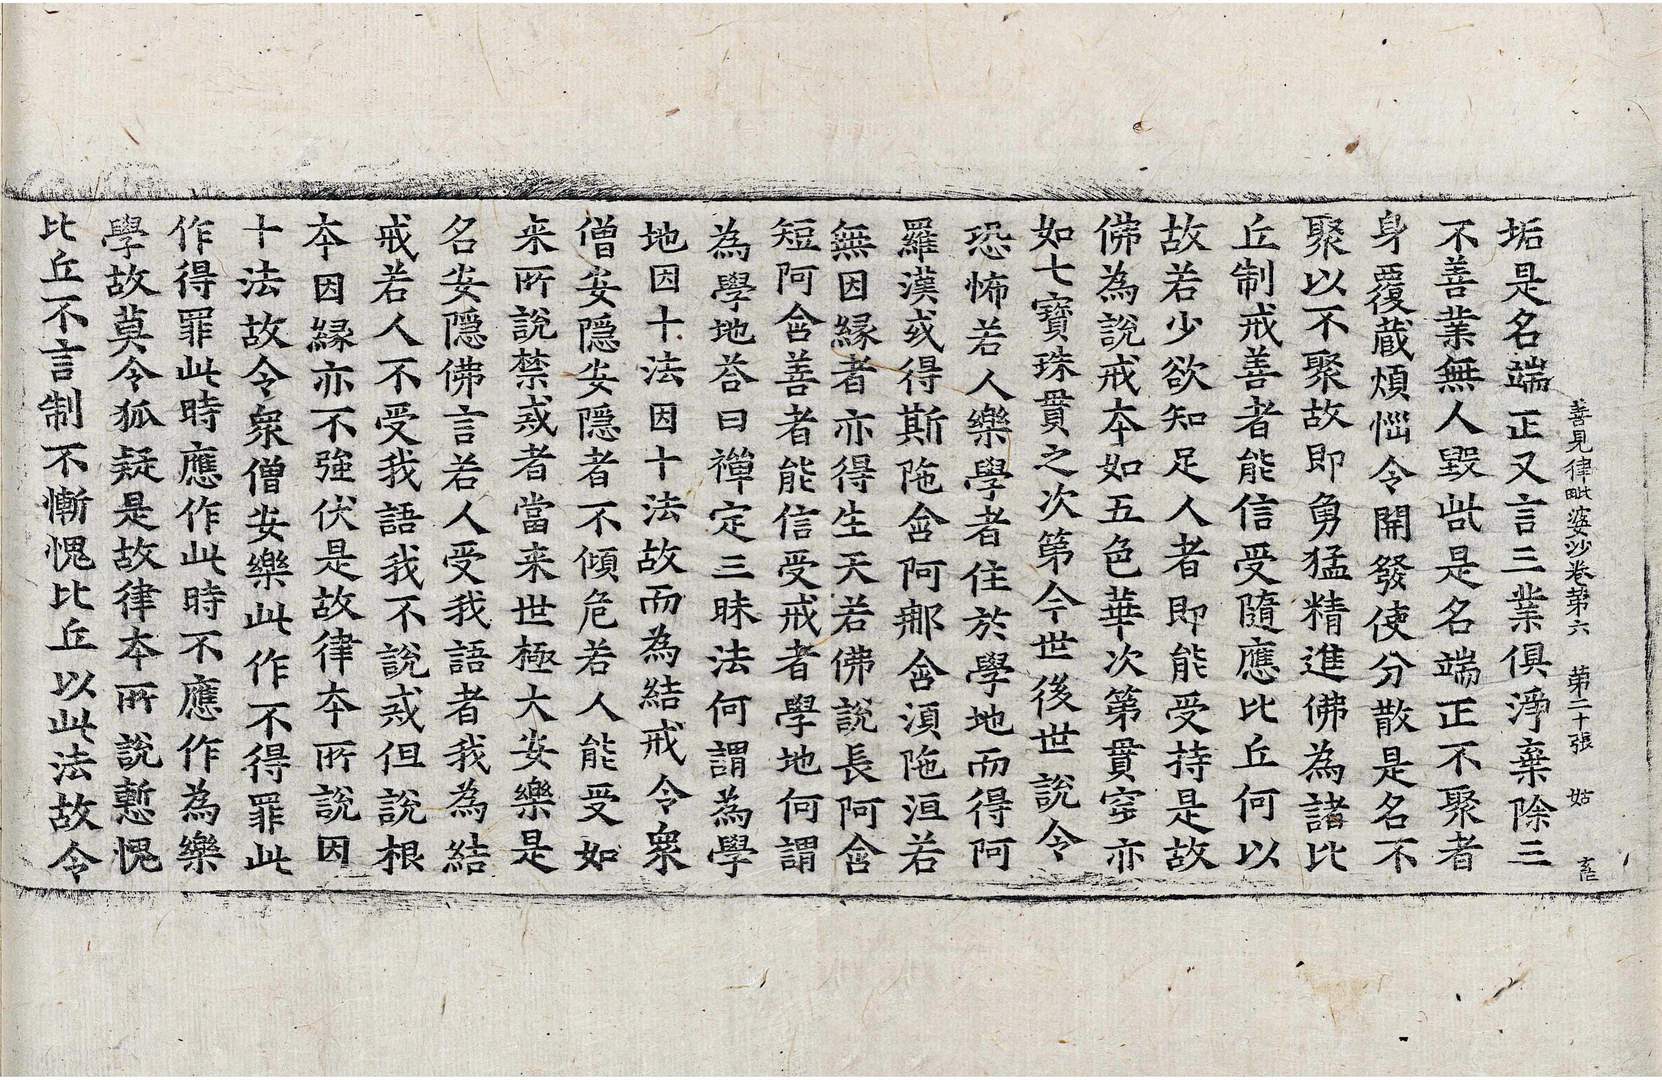 善見律毗婆沙卷第六 第二十張 姑
垢是名端正又言三業俱淨棄除三
不善業無人毀呰是名端正不聚者
身覆蔵煩惱令開發使分散是名不
聚以不聚故即勇猛精進佛為諸比
丘制戒善者能信受隨應比丘何以
故若少欲知足人者即能受持是故
佛為說戒本如五色華次第貫穿亦
如七寶珠貫之次第今世後世說令
恐怖若人樂學者住於學地而得阿
羅漢或得斯陁含阿那含湏陁洹若
無因縁者亦得生天若佛說長阿含
短阿含善者能信受戒者學地何謂
為學地荅曰禪定三昧法何謂為學
地因十法因十法故而為結戒令衆
僧安隱安隱者不傾危若人能受如
来所說禁戒者當来世極大安樂是
名安隱佛言若人受我語者我為結
戒若人不受我語我不說戒但說根
本因縁亦不強伏是故律本所說因
十法故令衆僧安樂此作不得罪此
作得罪此時應作此時不應作為樂
學故莫令狐疑是故律本所說慙愧
比丘不言制不慚愧比丘以此法故令